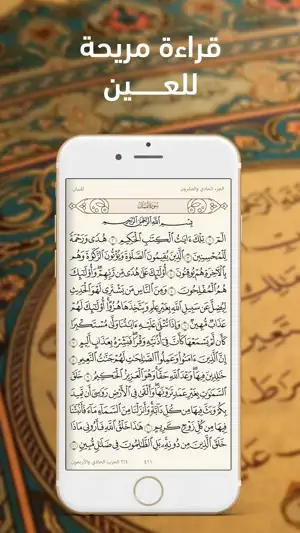 قراءة مريحة
للعين
الجزء الحادي والعشرون
لقمان
سُورَةُ لُقۡمَانَ
بِسۡمِ ٱللَّهِ ٱلرَّحۡمَٰنِ ٱلرَّحِيمِ
الٓمٓ ١ تِلۡكَ ءَايَٰتُ ٱلۡكِتَٰبِ ٱلۡحَكِيمِ ٢ هُدٗى وَرَحۡمَةٗ
لِّلۡمُحۡسِنِينَ ٣ ٱلَّذِينَ يُقِيمُونَ ٱلصَّلَوٰةَ وَيُؤۡتُونَ ٱلزَّكَوٰةَ وَهُم
بِٱلۡأٓخِرَةِ هُمۡ يُوقِنُونَ ٤ أُوْلَٰٓئِكَ عَلَىٰ هُدٗى مِّن رَّبِّهِمۡۖ وَأُوْلَٰٓئِكَ
هُمُ ٱلۡمُفۡلِحُونَ ٥ وَمِنَ ٱلنَّاسِ مَن يَشۡتَرِي لَهۡوَ ٱلۡحَدِيثِ
لِيُضِلَّ عَن سَبِيلِ ٱللَّهِ بِغَيۡرِ عِلۡمٖ وَيَتَّخِذَهَا هُزُوًاۚ أُوْلَٰٓئِكَ لَهُمۡ
عَذَابٞ مُّهِينٞ ٦ وَإِذَا تُتۡلَىٰ عَلَيۡهِ ءَايَٰتُنَا وَلَّىٰ مُسۡتَكۡبِرٗا
كَأَن لَّمۡ يَسۡمَعۡهَا كَأَنَّ فِيٓ أُذُنَيۡهِ وَقۡرٗاۖ فَبَشِّرۡهُ بِعَذَابٍ أَلِيمٍ ٧
إِنَّ ٱلَّذِينَ ءَامَنُواْ وَعَمِلُواْ ٱلصَّٰلِحَٰتِ لَهُمۡ جَنَّٰتُ ٱلنَّعِيمِ ٨
خَٰلِدِينَ فِيهَاۖ وَعۡدَ ٱللَّهِ حَقّٗاۚ وَهُوَ ٱلۡعَزِيزُ ٱلۡحَكِيمُ ٩ خَلَقَ
ٱلسَّمَٰوَٰتِ بِغَيۡرِ عَمَدٖ تَرَوۡنَهَاۖ وَأَلۡقَىٰ فِي ٱلۡأَرۡضِ رَوَٰسِيَ أَن تَمِيدَ
بِكُمۡ وَبَثَّ فِيهَا مِن كُلِّ دَآبَّةٖۚ وَأَنزَلۡنَا مِنَ ٱلسَّمَآءِ مَآءٗ فَأَنۢبَتۡنَا
فِيهَا مِن كُلِّ زَوۡجٖ كَرِيمٍ ١٠ هَٰذَا خَلۡقُ ٱللَّهِ فَأَرُونِي مَاذَا
خَلَقَ ٱلَّذِينَ مِن دُونِهِۦۚ بَلِ ٱلظَّٰلِمُونَ فِي ضَلَٰلٖ مُّبِينٖ ١١
٤١١
٣/٤ الحزب الحادي والأربعون